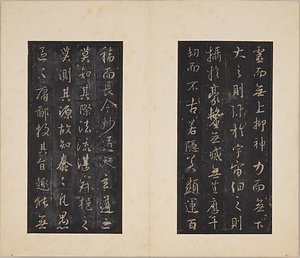 靈而無上抑神力而無下
大之則彌於宇宙細之則
攝於豪釐無滅無生歷千
劫而不古若隱若顯運百
福而長今妙道凝玄遵之
莫知其際法流湛寂挹之
莫測其源故知蠢〻凡愚
區〻庸鄙投其旨趣能無